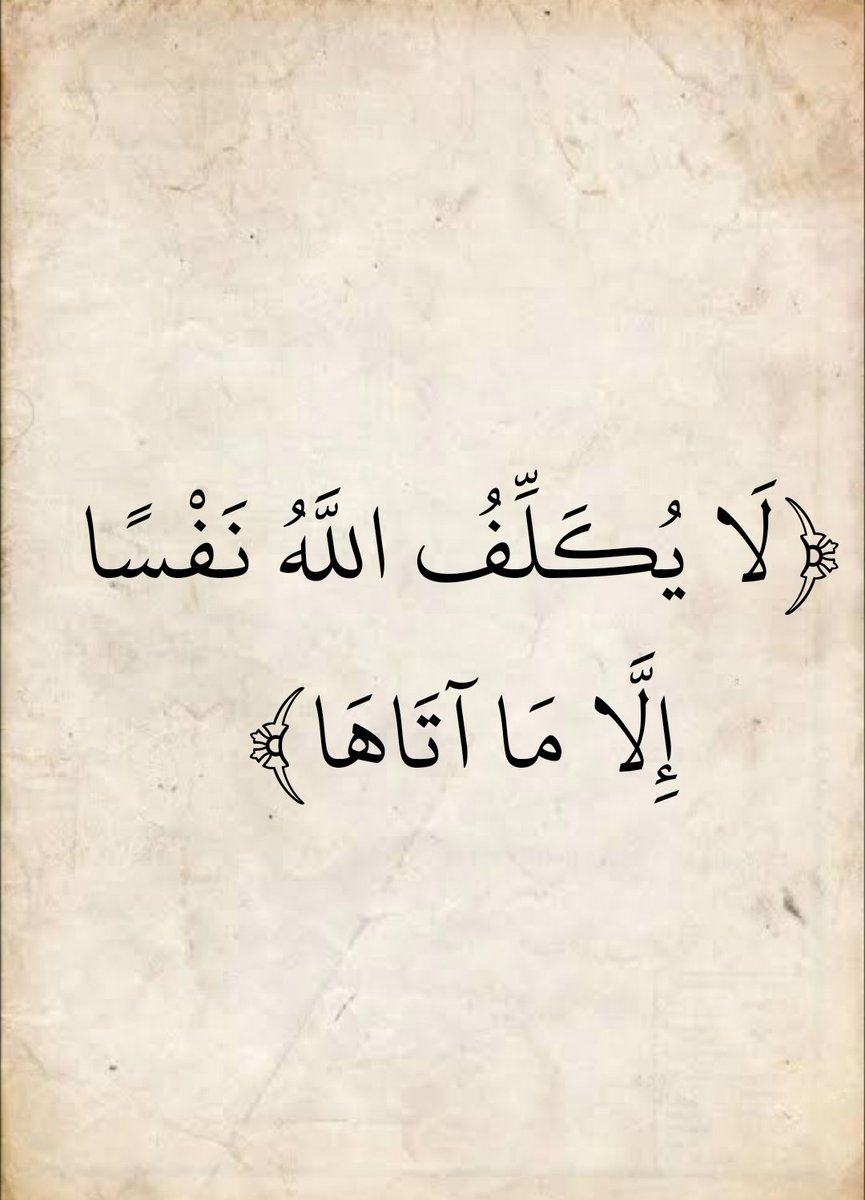 ﴿لَا يُكَلِّفُ اللَّهُ نَفْسًا
إِلَّا مَا آتَاهَا﴾